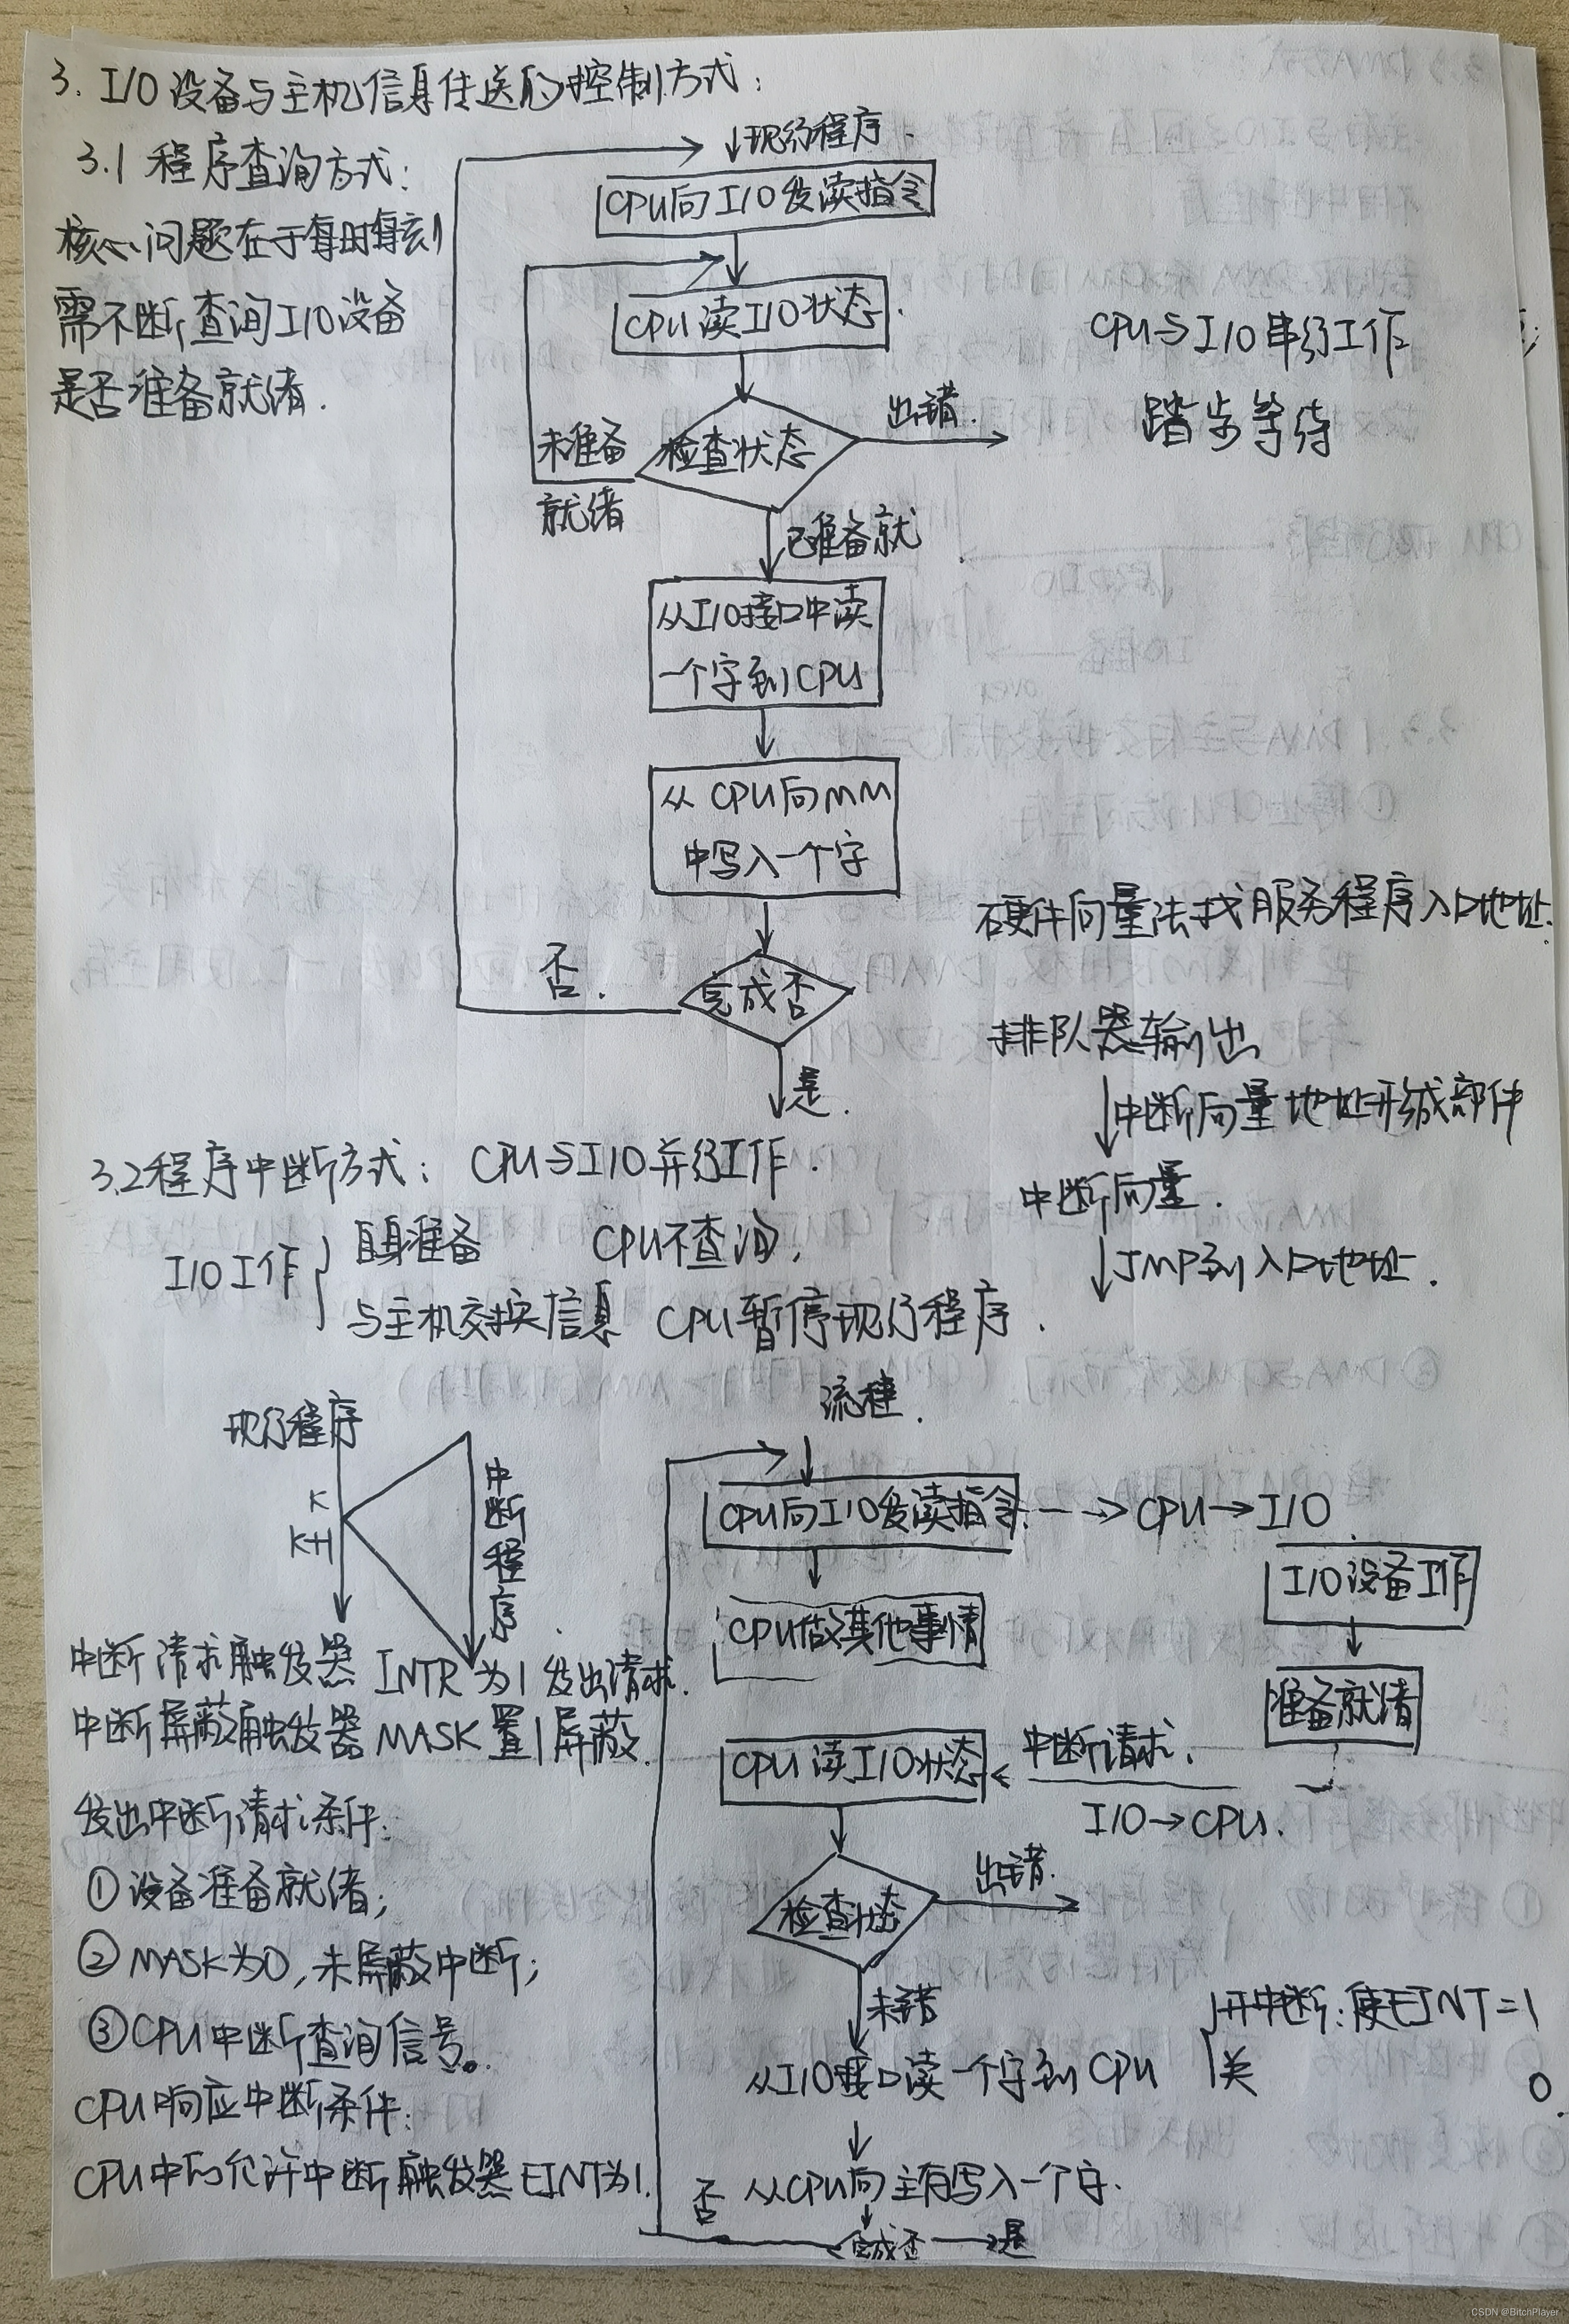 3. I/O 设备与主机信息传送的控制方式：
3.1 程序查询方式：
核心问题在于每时每刻
需不断查询I/O设备
是否准备就绪.
现行程序.
CPU向I/O发读指令
CPU读I/O状态
检查状态
出错.
未准备
就绪
已准备就
从I/O接口中读
一个字到CPU
从CPU向MM
中写入一个字
完成否
否.
是.
CPU与I/O串行工作
踏步等待
硬件向量法找服务程序入口地址.
排队器输出
中断向量地址形成部件
中断向量.
JMP到入口地址.
3.2程序中断方式：CPU与I/O并行工作.
I/O工作
自身准备 CPU不查询,
与主机交换信息 CPU暂停现行程序.
现行程序
K
K+1
中断程序.
中断请求触发器 INTR为1发出请求.
中断屏蔽触发器 MASK置1屏蔽.
发出中断请求条件：
①设备准备就绪；
②MASK为0,未屏蔽中断；
③CPU中断查询信号。
CPU响应中断条件：
CPU中的允许中断触发器EINT为1.
流程.
CPU向I/O发读指令
CPU→I/O
CPU做其他事情
I/O设备工作
准备就绪
中断请求.
I/O→CPU.
CPU读I/O状态
检查状态
出错.
未错
从I/O接口读一个字到CPU
从CPU向主存写入一个字.
完成否
是
否
开中断：使EINT=1
关 0.
CSDN @BitchPlayer